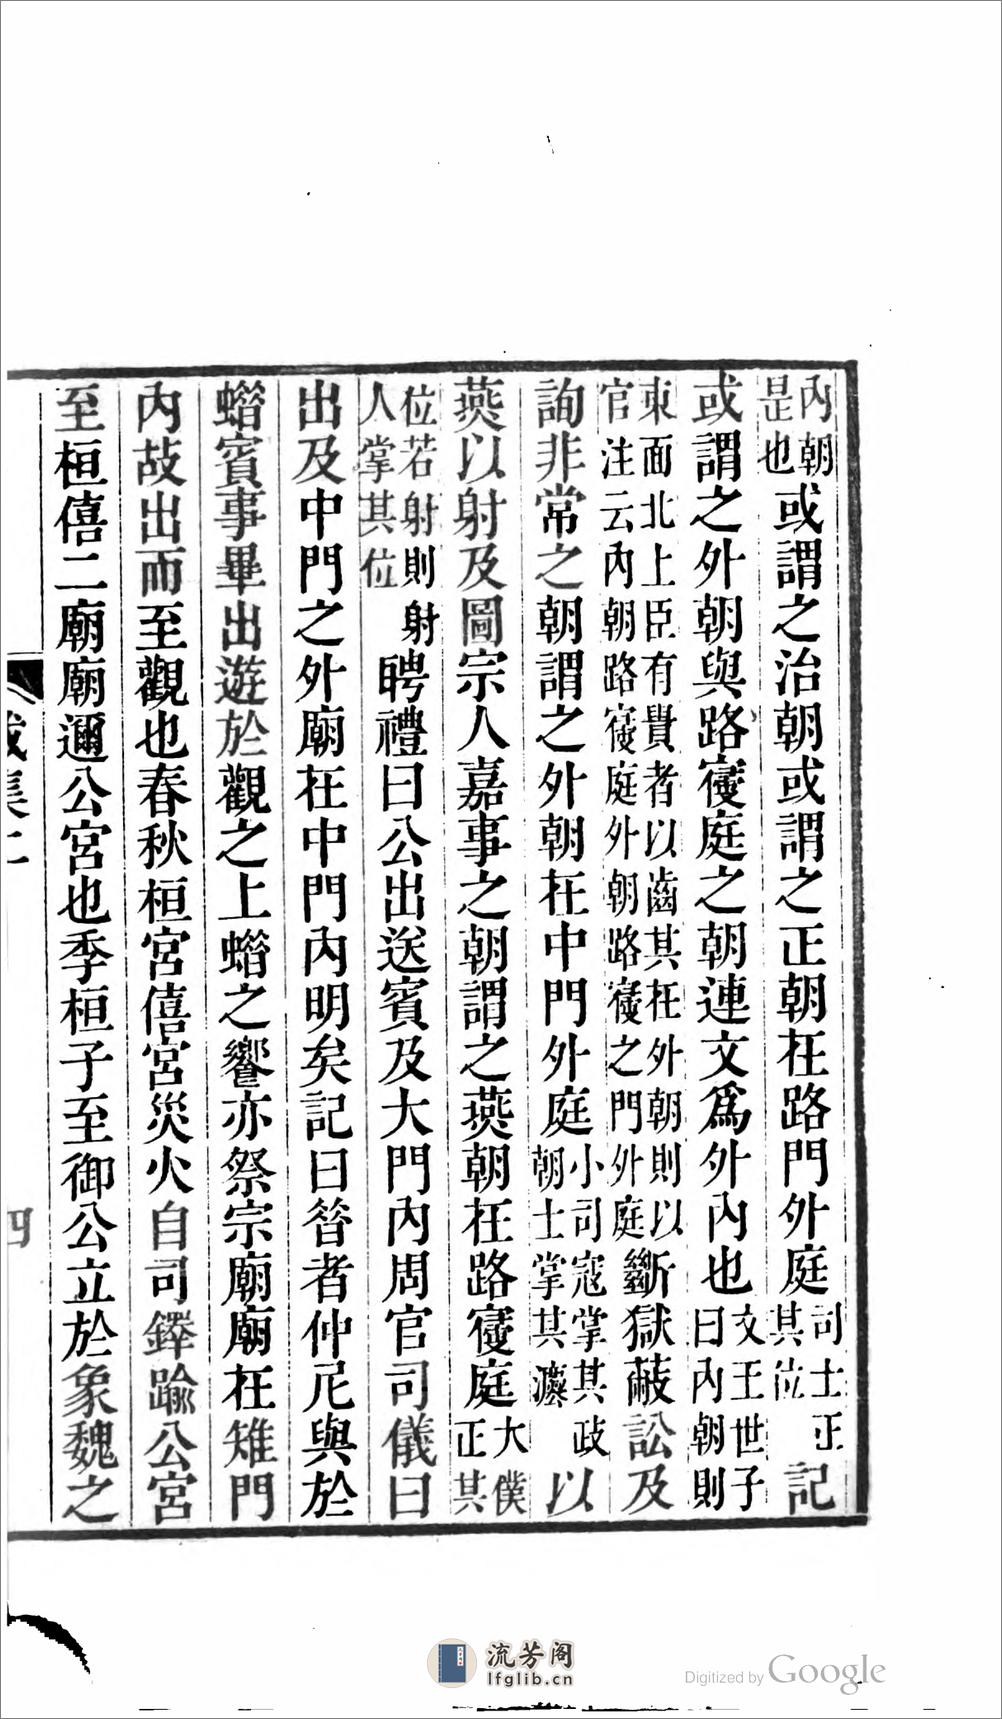 內朝是也或謂之治朝或謂之正朝在路門外庭司士正其位記
或謂之外朝與路寑庭之朝連文爲外內也文王世子曰內朝則
東面北上臣有貴者以齒其在外朝則以官注云內朝路寑庭外朝路寑之門外庭斷獄蔽訟及
詢非常之朝謂之外朝在中門外庭小司寇掌其政朝士掌其灋以
燕以射及圖宗人嘉事之朝謂之燕朝在路寑庭大僕正其
位若射則射人掌其位聘禮曰公出送賓及大門內周官司儀曰
出及中門之外廟在中門內明矣記曰昝者仲尼與於
蜡賓事畢出遊於觀之上蜡之饗亦祭宗廟廟在雉門
內故出而至觀也春秋桓宮僖宮災火自司鐸踰公宮
至桓僖二廟廟邇公宮也季桓子至御公立於象魏之
戴集
四
流芳阁
lfglib.cn
Digitized by Google